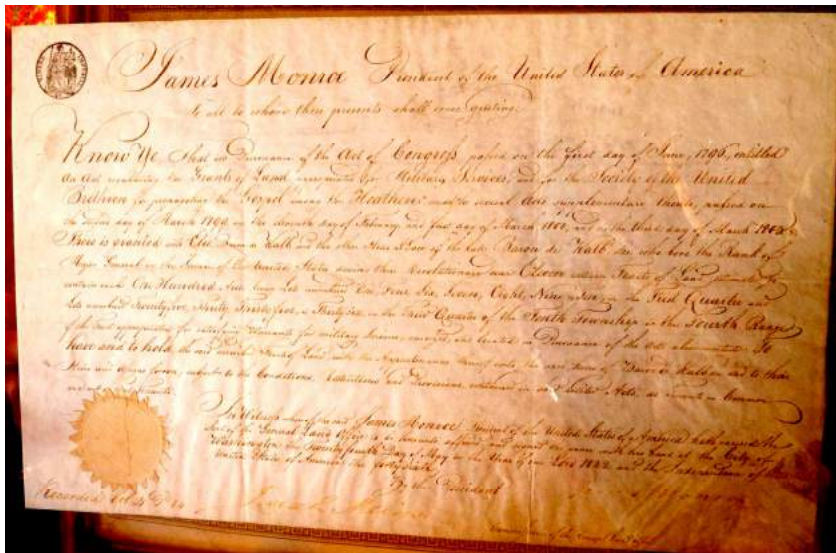 James Monroe President of the United States of America
To all to whom these presents shall come greeting
Know Ye That in Pursuance of the Act of Congress passed on the first day of June, 1796, entitled
An Act regulating the Grants of Land appropriated for Military Services, and for the Society of the United
Brethren for propagating the Gospel among the Heathen; and to several Acts supplementary thereto, passed on
the second day of March 1799, on the eleventh day of February and first day of March 1800, and on the third day of March 1803
There is granted unto Elie Baron de Kalb and the other Heirs at Law of the late Baron de Kalb, who bore the Rank of
Major General in the Service of the United States during the Revolutionary war Eleven Tracts of Land
contain each One Hundred Acres being Lots numbered One, Four, Six, Seven, Eight, Nine, Ten, in the First Quarter and
Lots numbered Twenty five, Thirty, Thirty five, in the Third Quarter of the Tenth Township in the Fourth Range
of the Tract appropriated for satisfying Warrants for military Services, surveyed, and located in Pursuance of the Acts above recited. To
have and to hold the said Tracts of Land with the Appurtenances thereof unto the said Heirs of Baron de Kalb and to their
Heirs and assigns forever, subject to the Conditions, Restrictions and Provisions, contained in said Acts, as Tenants in Common
and not as joint tenants.
In Witness whereof the said James Monroe President of the United States of America hath caused the
Seal of the General Land Office to be hereunto affixed and signed his name with his hand at the City of
Washington the Twenty fourth Day of May in the Year of our Lord 1822 and the Independence of the
United States of America the forty sixth
By the President
James Monroe
Recorded
Commissioner of the General Land Office